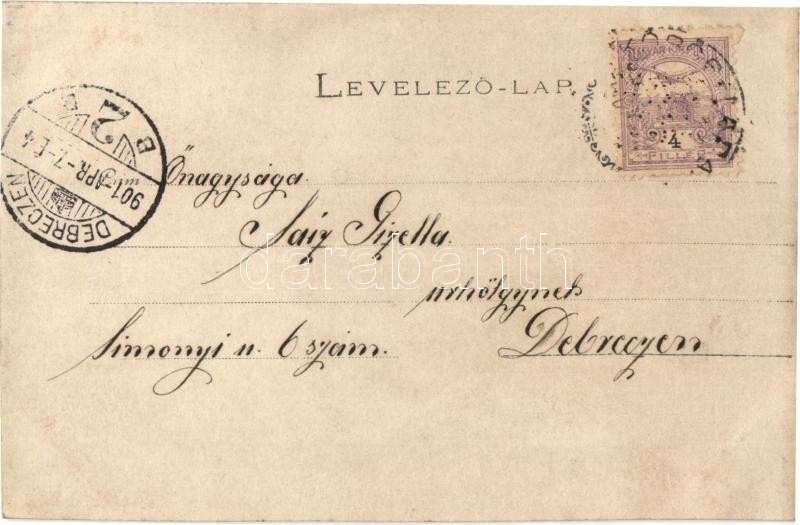 LEVELEZŐ-LAP
MAGYAR KIR. POSTA
4
FILLÉR
B
2
B
901 APR. 7-E.4
DEBRECZEN
Őnagysága
Saiz Gizella
urhölgynek
Simonyi u. 6 szám.
Debreczen
darabanth